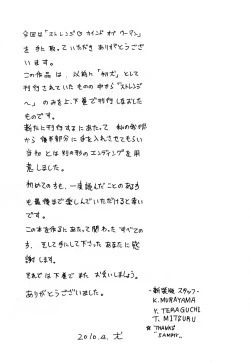 今回は「ストレンジ カインド オブ ウーマン」
を手に取っていただきありがとうござ
います。
この作品は、以前に「初犬」として
刊行されていたものの中から"ストレンジ
~"のみを上、下巻で刊行しましした
ものです。
新たに刊行するにあたって 私の
から 後半部分に手を入れさせてもらい
当初とは別の形のエンディングを用
意しました。
初めての方も、一度読んだことのある方
も最後まで楽しんでいただけると幸い
です。
この本を作るにあたって関わったすべての
方、そして手にして下さったあなたに感
謝します。
それでは下巻でまたお会いしましょう。
ありがとうございました。
-新装版 スタッフ-
K.MURAYAMA
Y.TERAGUCHI
T.MITSURU
☆THANKS
"SANPIN"
2010.2.犬